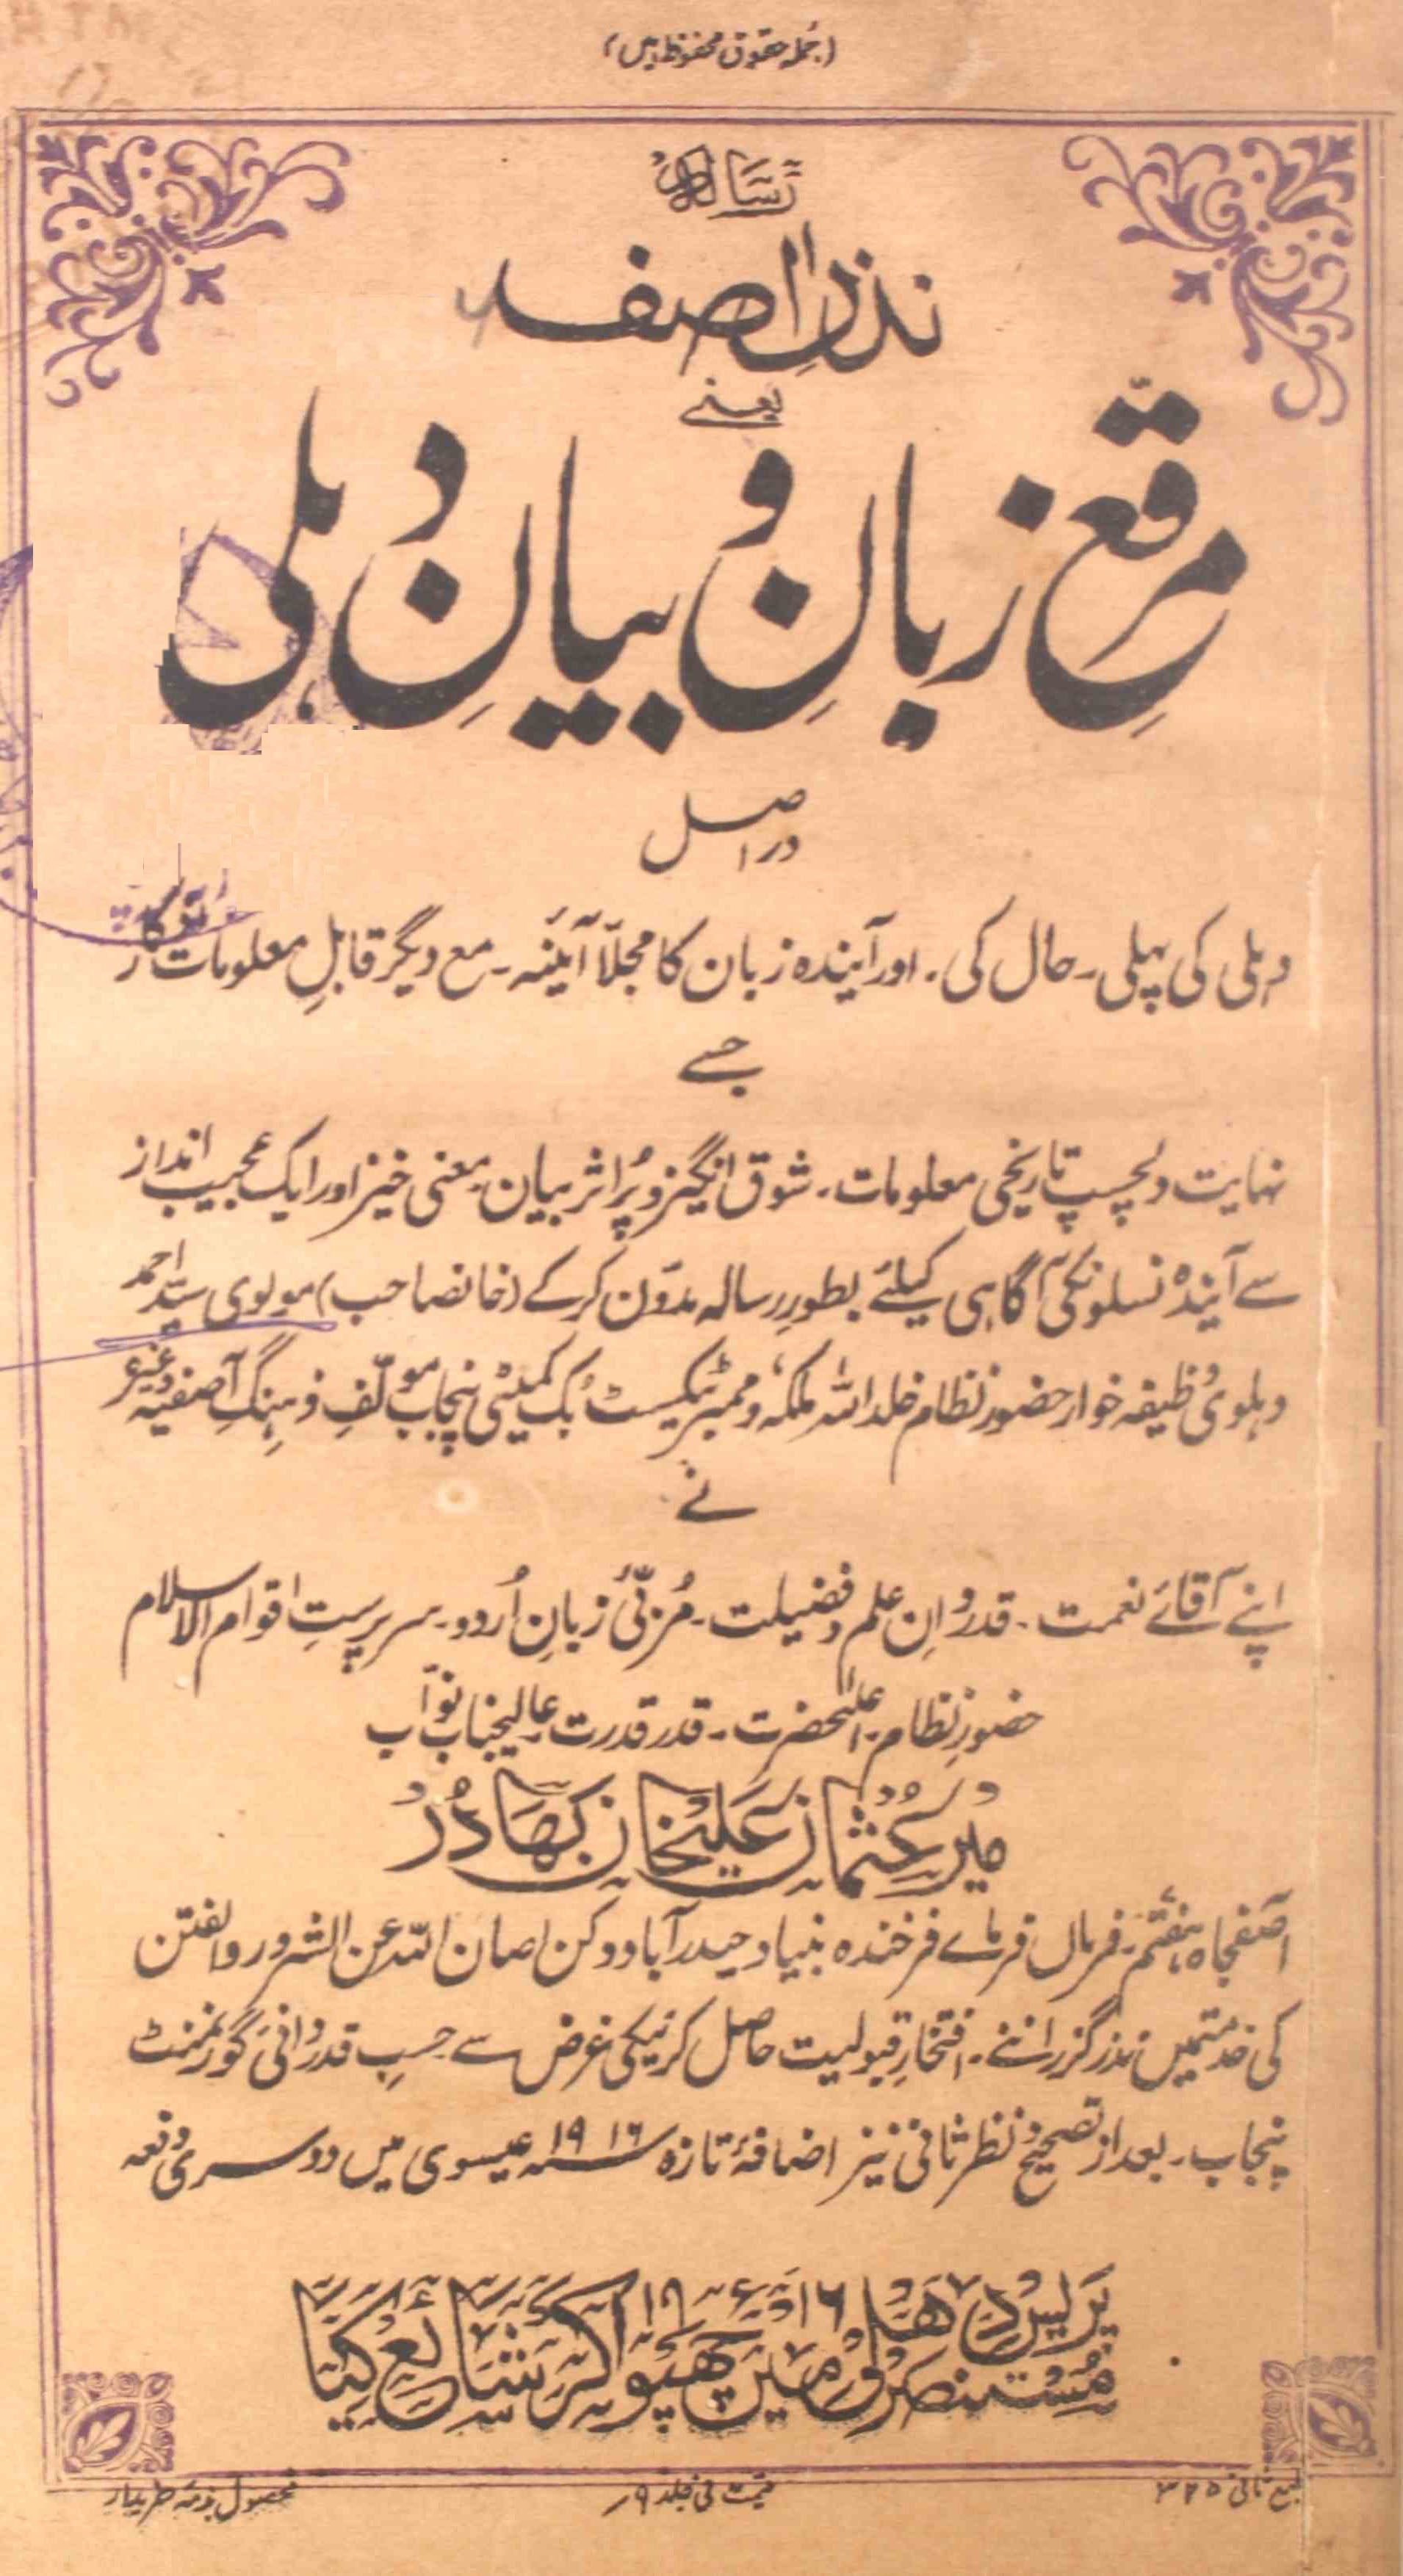 (جُملہ حقوق محفوظ ہیں)
رسالہ
نذرِ آصف
یعنے
مرقّعِ زبانِ و بیانِ دہلی
دراصل
دہلی کی پہلی۔ حال کی۔ اور آیندہ زبان کا مجلّا آئینہ۔ مع دیگر قابلِ معلومات تذکار
جسے
نہایت دلچسپ تاریخی معلومات۔ شوق انگیز و پُر اثر بیان۔ معنی خیز اور ایک عجیب انداز
سے آیندہ نسلونکی آگاہی کیلئے بطورِ رسالہ مدوّن کرکے (خانصاحب) مولوی سیّد احمد
دہلوی وظیفہ خوار حضور نظام خلد اللہ ملکہٗ و ممبر ٹیکسٹ بُک کمیٹی پنجاب مؤلّفِ فرہنگِ آصفیہ وغیرہ
نے
اپنے آقائے نعمت۔ قدردانِ علم و فضیلت۔ مُربّیٔ زبانِ اُردو۔ سرپرستِ اقوام الاسلام
حضورِ نظام۔ اعلیٰحضرت۔ قدر قدرت۔ عالیجناب نوّاب
میر عثمان علیخان بہادر
آصفجاہ ہفتم۔ فرماں فرمائے فرخندہ بنیاد حیدرآباد دکن صان اللہ عن الشرور والفتن
کی خدمتمیں نذر گزراننے۔ افتخارِ قبولیت حاصل کرنیکی غرض سے حسبِ قدردانی گورنمنٹ
پنجاب۔ بعد از تصحیح و نظرثانی نیز اضافۂ تازہ ۱۹۱۶ عیسوی میں دوسری دفعہ
پریس دہلی
میں چھپوا کر شائع کیا
طبع ثانی ۳۲۵
قیمت فی جلد ۹؍
محصول بذمہ خریدار